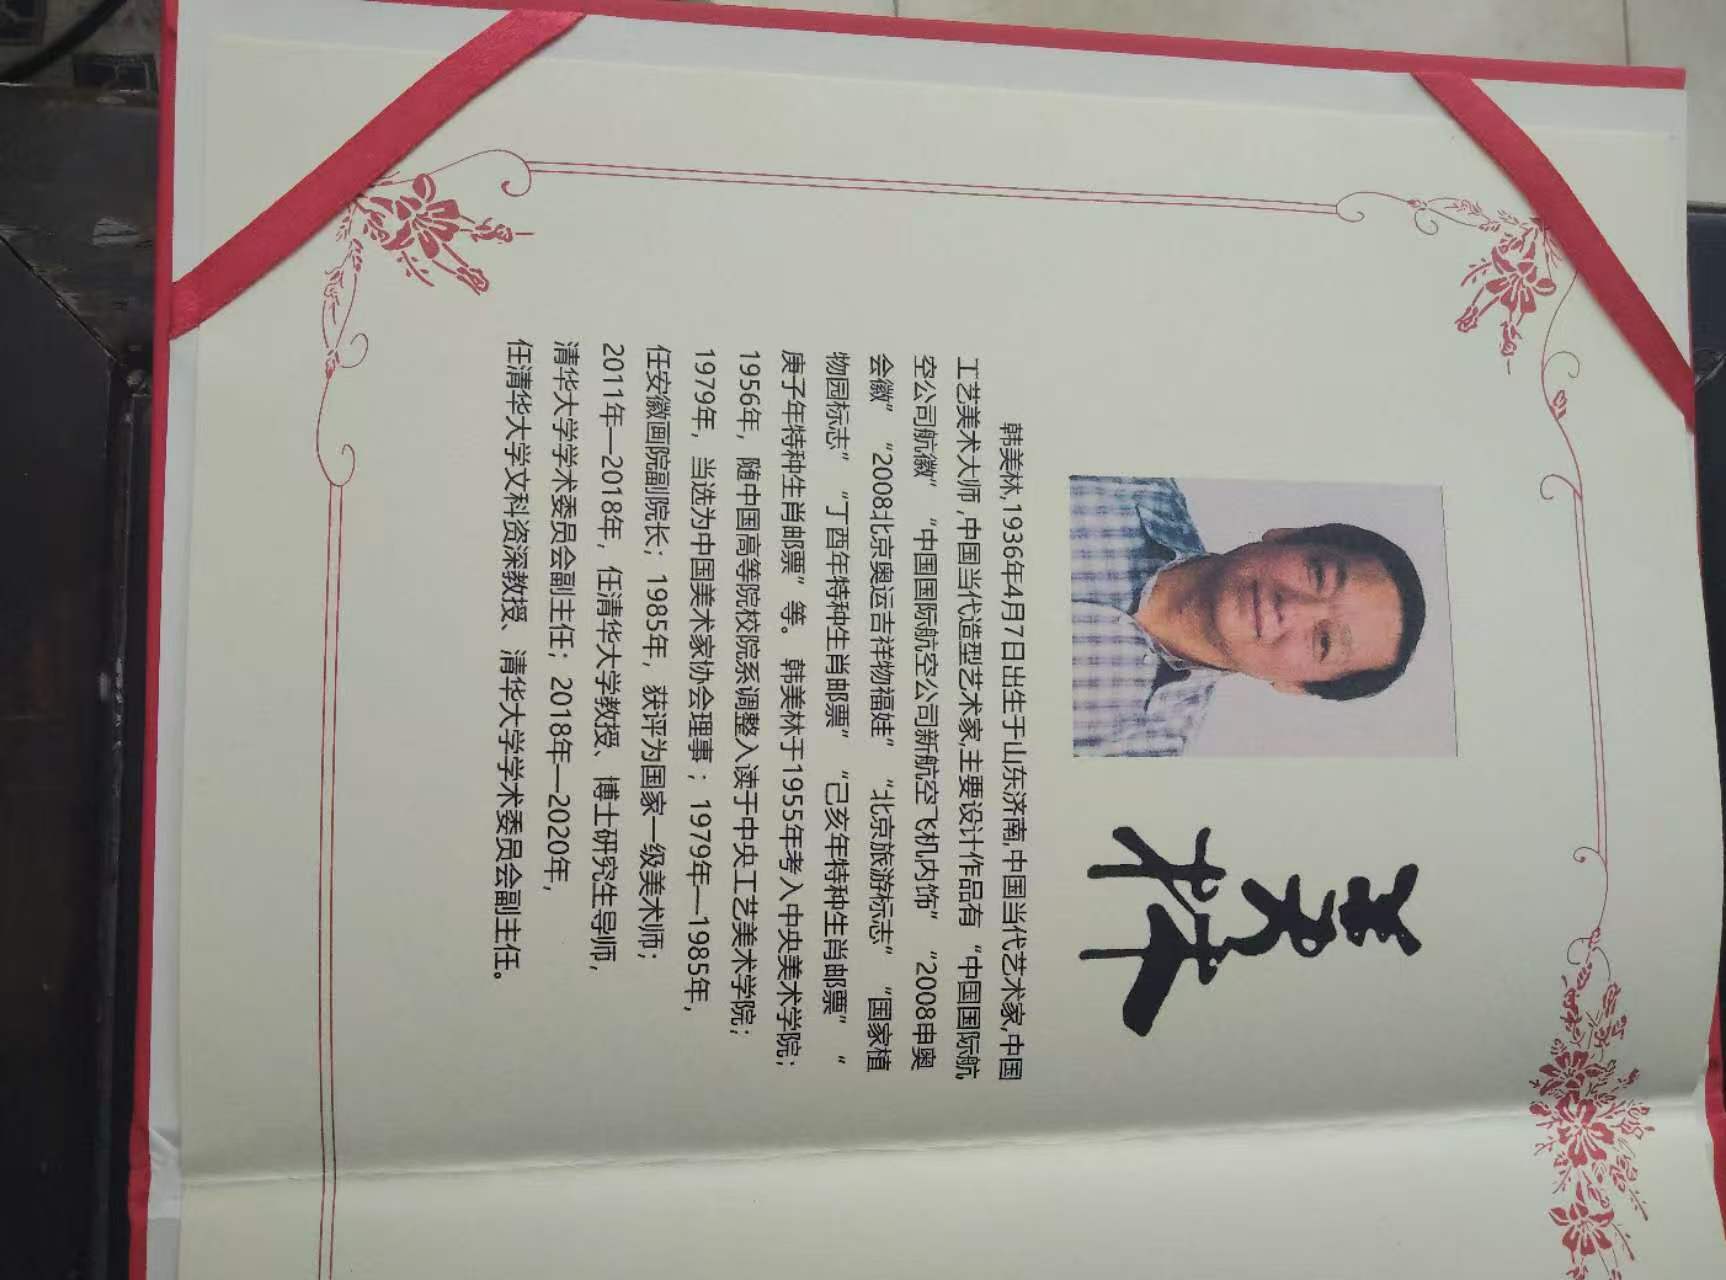 美林
韩美林,1936年4月7日出生于山东济南,中国当代艺术家,中国
工艺美术大师 ,中国当代造型艺术家,主要设计作品有“中国国际航
空公司航徽”“中国国际航空公司新航空飞机内饰”“2008申奥
会徽”“2008北京奥运吉祥物福娃”“北京旅游标志”“国家植
物园标志”“丁酉年特种生肖邮票”“己亥年特种生肖邮票”“
庚子年特种生肖邮票”等。 韩美林于1955年考入中央美术学院；
1956年，随中国高等院校院系调整入读于中央工艺美术学院；
1979年，当选为中国美术家协会理事 ；1979年—1985年，
任安徽画院副院长；1985年，获评为国家一级美术师；
2011年—2018年，任清华大学教授、博士研究生导师，
清华大学学术委员会副主任；2018年—2020年，
任清华大学文科资深教授、清华大学学术委员会副主任。